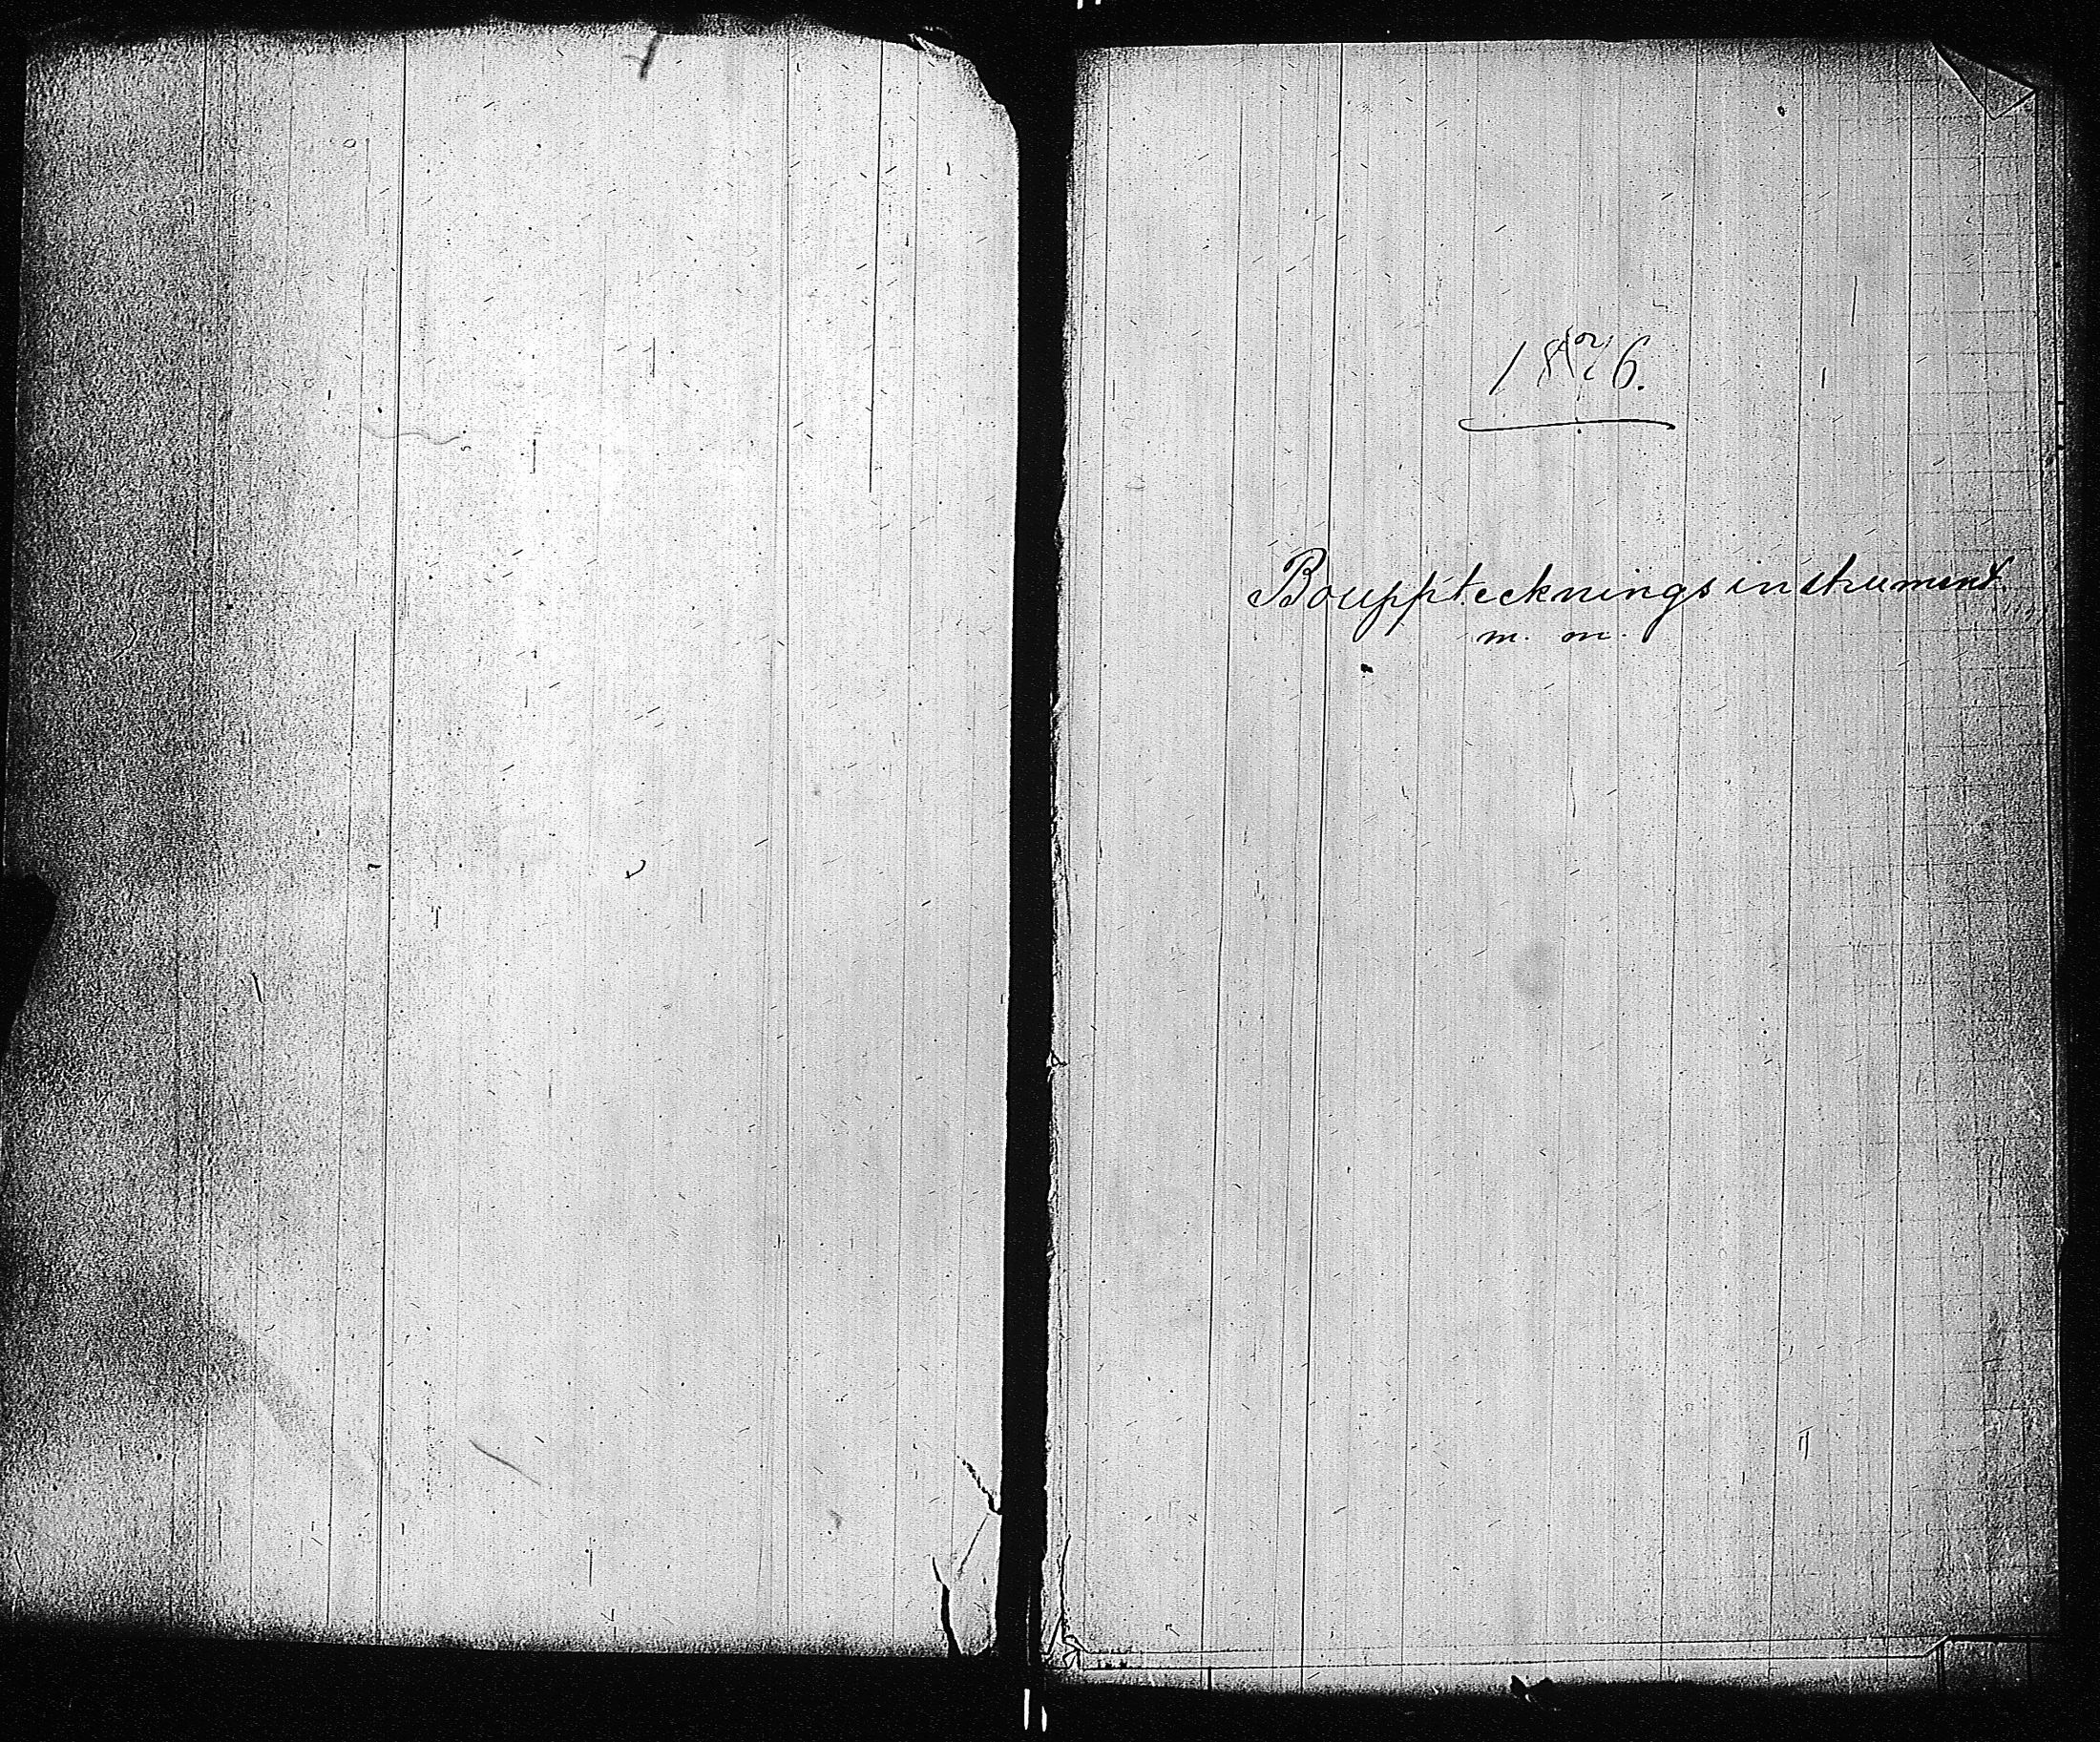 1876.
Bouppteckningsinstrument
m. m.